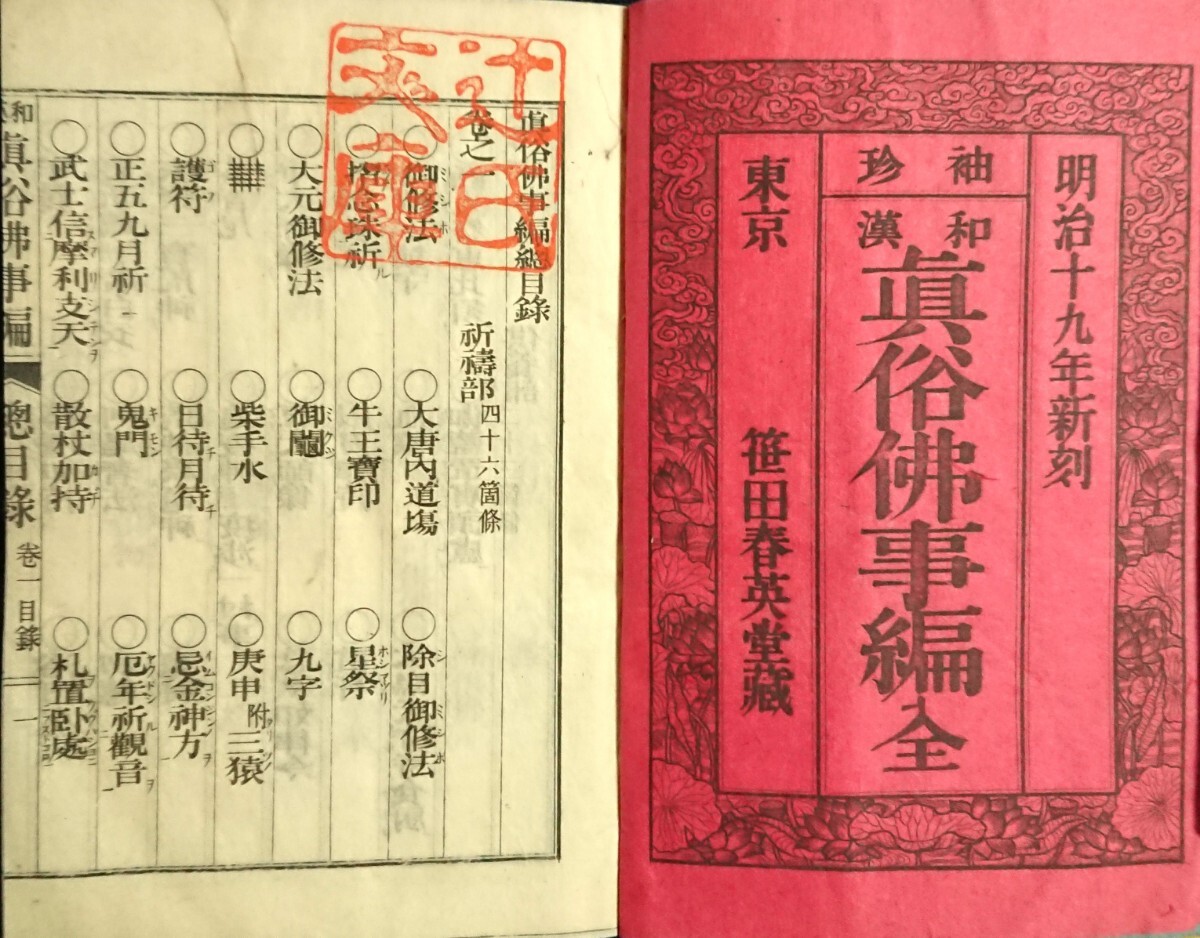 明治十九年新刻
袖珍
和漢
眞俗佛事編 全
東京 笹田春英堂藏
眞俗佛事編總目錄
卷之一 祈禱部 四十六箇條
○御修法 ○大唐内道場 ○除目御修法
○ 念珠祈 ○牛王寶印 ○星祭
○大元御修法 ○御䦰 ○九字
○ ○柴手水 ○庚申附三猿
○護符 ○日待月待 ○忌金神方
○正五九月祈 ○鬼門 ○厄年祈觀音
○武士信摩利支天 ○散杖加持 ○札置卧處
和 眞俗佛事編 總目錄 卷一目錄 一
辻巳文庫